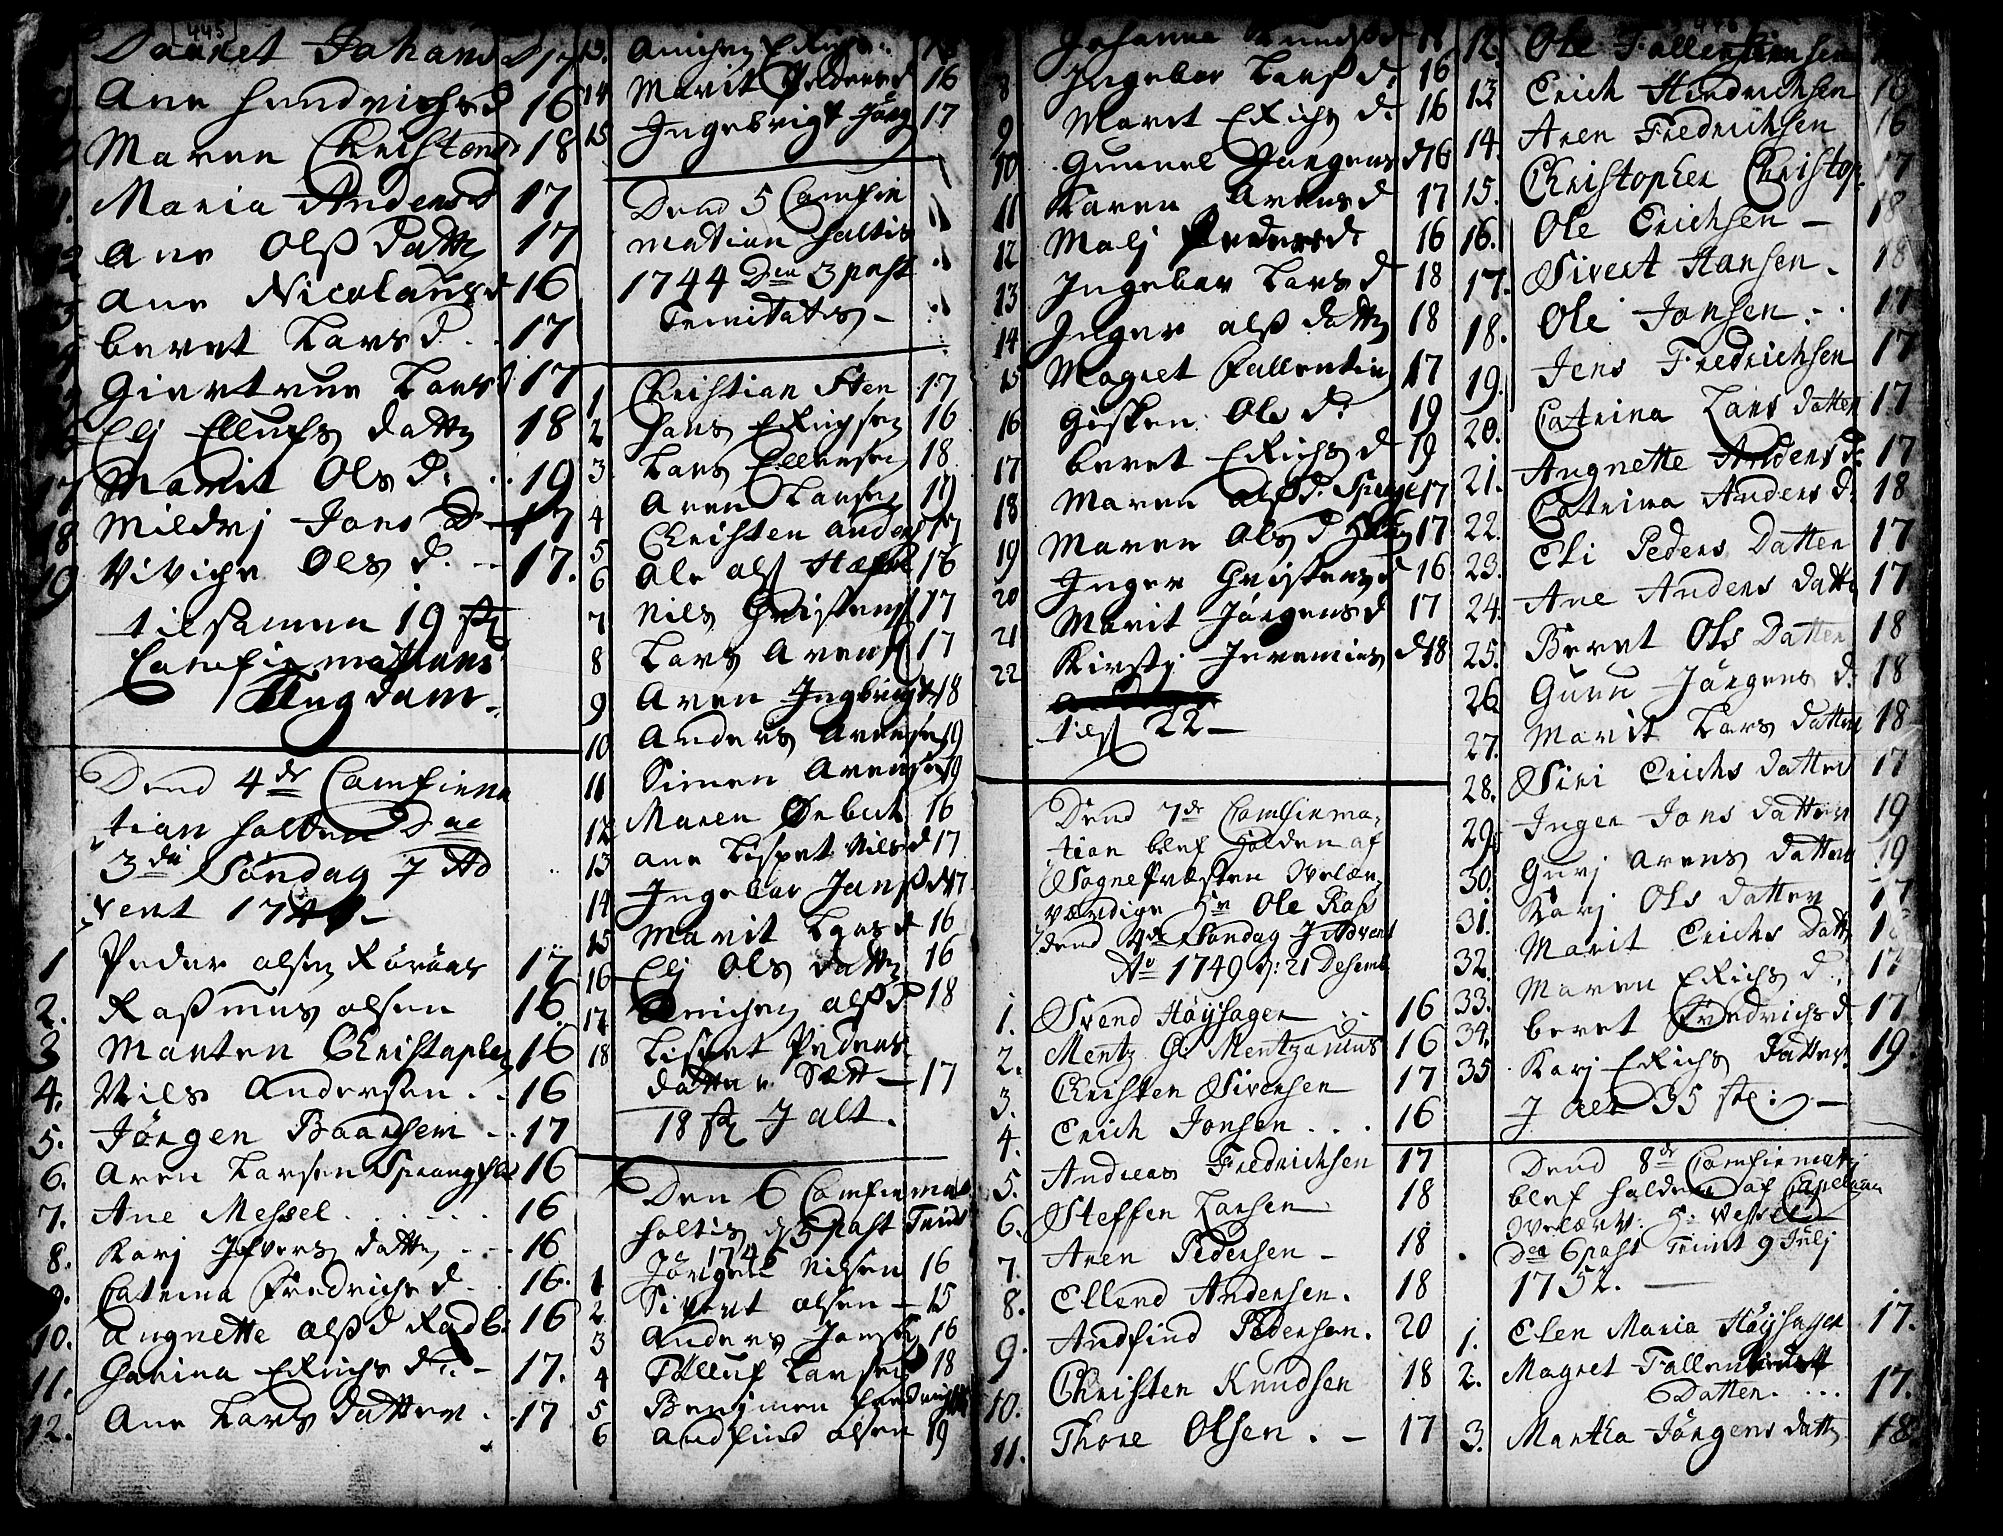 445
Daaret Johans D 17
Ane Hendrichs d 16
Maren Christens 18
Maria Anders d 17
12 Ane Olß Datter 17
Ane Nicolaus d 16
beret Lars d. 17
Giertrue Lars d 17
Elj Ellufs datter 18
17 Marit Ols d: 19
18 Mildrj Jons D 17
19 Viviche Ols d. 17.
tilsamen 19 stk
Comfirmations
Ungdom.
Dend 4de Comfirma
tion holden Dae
3die Söndag J Ad
vent 174
1 Peder olsen Röraas 17
2. Raßmus olsen 16
3 Marten Christopher 16
4. Nils Andersen. 16
5. Jörgen Baardsen 17
6. Aren Larsen Spraangsli 16
7. Ane Messel 16
8. Karj Jfvers datter 16
9. Catrina Fredrichs d. 16.
10. Augnette olß d Rødb. 16
11. Carina Erichs d. 17.
12. Ane Lars Datter. 17
13. Anichen Erichs 18
14 Marit Peders d 16
15 Ingebrigt Jörg 17
Dend 5 Comfir
mation holtis
1744 Den 3 post
Trinitatis
1 Christian Sten 17
2 Hans Erichsen 16
3. Lars Ellevsen 18
4 Aren Larsen 19
5 Christen anders 17
6 Ole olß Hæstl 16
7 Nils Christens 17
8 Lars Arens 17
9 Aren Ingbrigt 18
10 Anders Arensen 19
11 Simen Arensen 19
12 Maren Örbech 16
13 ane Lisbet Nils d 17
14 Ingebor Jonß d 17
15 Marit Lars d 16
16 Elj Ols datter 16
17 Anichen olß d 18
18 Lisbet Peders
datter Sætt 17
18 stk J alt.
Den 6 Comfirma
holtis d 5 post Trinit
1746
1 Jörgen Nilsen 16
2. Sivert olsen 15
3 Anders Jonsen 16
4 Tolluf Larsen 18
5 Benjmen fredrichs
6 Andfind olsen 19
446
Johanne Knuds d 17
8 Ingebor Larß d. 16
9 Maret Erichs d. 16
10 Gunnel Jörgens d 16
11 Karen Arens d 17
12 Malj Peders d: 16
13 Ingebor Lars d 18
14 Inger olß datter 18
15 Magret Fallentin 17
16 Gisken Ols d: 19
17 beret Erichs d 19
18 Maren olß d. 17
19 Maren Ols d 17
20 Inger Christens d 16
21 Marit Jörgens d 17
22 Kirstj Jeremias d 18
tilß 22
Dend 7de Comfirma,
tion blef holden af
SognePræsten Velær,
værdige Hr Ole Røss
dend 4de Söndag J Advent
Ao 1749 d: 21 Desemb
1. Svend Höysager 16
2. Mentz C. Mentzonius 16
3. Christen Siversen 17
4. Erich Jonsen . . . 16
5. Andreas Fredrichsen 17
6. Steffen Larsen 18
7. Aren Pedersen 18
8. Ellend Andersen. 18
9. Andfind Pedersen. 20
10. Christen Knudsen 18
11. Thore Olsen. 17
12. Ole Fallentinsen
13 Erich Hindrichsen 18
14. Aren Fredrichsen 16
15. Christopher Christop. 17
16. Ole Erichsen 18
17. Sivert Hansen. 18
18. Ole Jonsen. 17
19. Jens Fredrichsen 17
20. Catrina Lars datter 17
21. Augnette Anders d. 17
22. Catrina Anders d. 18
23. Eli Peders Datter 17
24. Ane Anders datt 17
25. Beret Ols Datter 18
26. Guru Jörgens d. 18
27. Marit Lars datter 18
28. Siri Erichs datter 17
29 Inger Jons datter 19
30. Gurj arens datter 19
31. Karj Ols datter 17
32. Marit Erichs Datt 18
33. Maren Erichs d. 17
34. beret Fredrichs d 17
35 Karj Erichs datter. 19
J alt 35 stk:
Dend 8de Comfirmati
blef holden af Capelaan
Velærv. H. Wessel
Den 6 post Trinit 9 Julj
1752.
1. Elen Maria Höysager 17.
2. Magret Fallentin
Datter. . . . 17.
3. Martha Jörgens datt 18